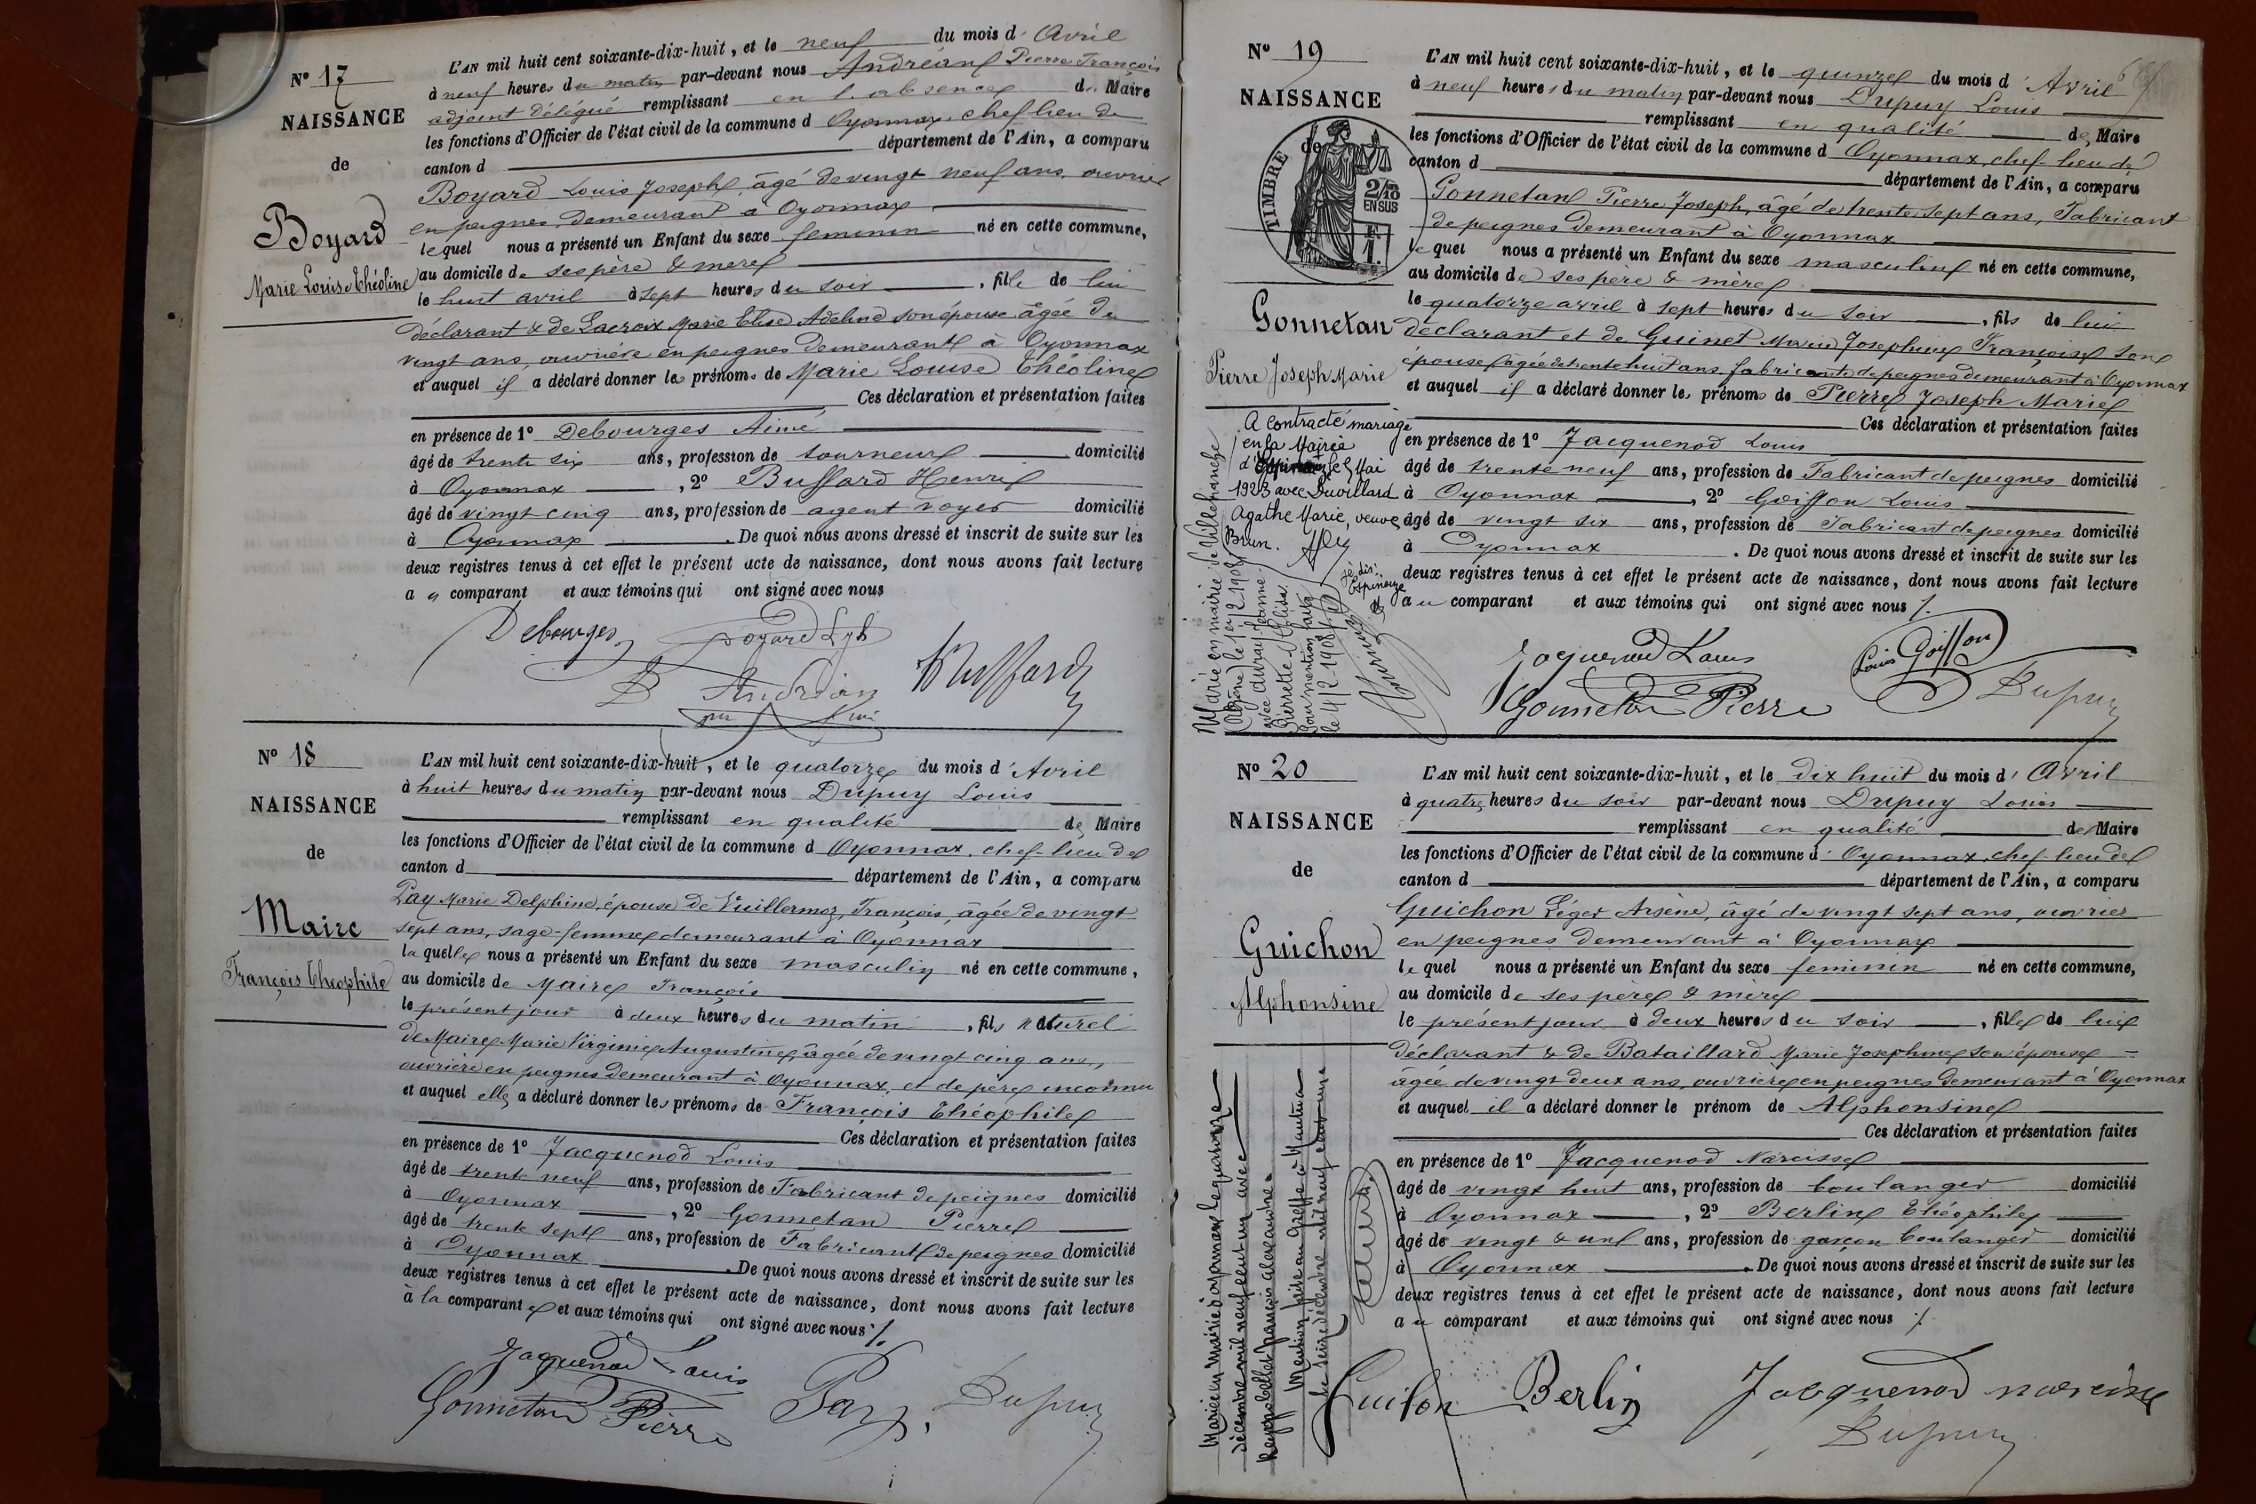 N° 17
NAISSANCE
de
Boyard
Marie Louise Théoline
L'AN mil huit cent soixante-dix-huit, et le neuf du mois d' Avril
à neuf heures du matin par-devant nous Andréan Pierre François
adjoint délégué remplissant en l'absence du Maire
les fonctions d'Officier de l'état civil de la commune d Oyonnax, chef lieu de
canton d département de l'Ain, a comparu
Boyard Louis Joseph, âgé de vingt neuf ans, ouvrier
en peignes, demeurant à Oyonnax
lequel nous a présenté un Enfant du sexe feminin né en cette commune,
au domicile de ses père & mere
le huit avril à sept heures du soir, fille de lui
déclarant & de Lacroix Marie Elise Adeline son épouse âgée de
vingt ans, ouvrière en peignes demeurant à Oyonnax
et auquel il a déclaré donner les prénoms de Marie Louise Théoline
Ces déclaration et présentation faites
en présence de 1° Debourges Aimé
âgé de trente six ans, profession de tourneur domicilié
à Oyonnax, 2° Buffard Henri
âgé de vingt cinq ans, profession de agent voyer domicilié
à Oyonnax. De quoi nous avons dressé et inscrit de suite sur les
deux registres tenus à cet effet le présent acte de naissance, dont nous avons fait lecture
au comparant et aux témoins qui ont signé avec nous
Debourges Boyard Ljh
Andréan Buffard
N° 18
NAISSANCE
de
Maire
François Théophile
L'AN mil huit cent soixante-dix-huit, et le quatorze du mois d' Avril
à huit heures du matin par-devant nous Dupuy Louis
remplissant en qualité de Maire
les fonctions d'Officier de l'état civil de la commune d Oyonnax, chef-lieu de
canton d département de l'Ain, a comparu
Pay Marie Delphine, épouse de Vuillermoz, François, âgée de vingt
sept ans, sage-femme demeurant à Oyonnax
laquelle nous a présenté un Enfant du sexe masculin né en cette commune,
au domicile de Maire François
le présent jour à deux heures du matin, fils naturel
de Maire Marie Virginie Augustine, âgée de vingt cinq ans,
ouvrière en peignes demeurant à Oyonnax, et de père inconnu
et auquel elle a déclaré donner les prénoms de François Théophile
Ces déclaration et présentation faites
en présence de 1° Jacquenod Louis
âgé de trente neuf ans, profession de Fabricant de peignes domicilié
à Oyonnax, 2° Gonnetan Pierre
âgé de trente sept ans, profession de Fabricant de peignes domicilié
à Oyonnax. De quoi nous avons dressé et inscrit de suite sur les
deux registres tenus à cet effet le présent acte de naissance, dont nous avons fait lecture
à la comparante et aux témoins qui ont signé avec nous
Jacquenod Louis
Gonnetan Pierre Pay Dupuy
N° 19
NAISSANCE
de
TIMBRE
2/10
EN SUS
F.
1.
Gonnetan
Pierre Joseph Marie
A contracté mariage
en la Mairie
d' Mai
1923 avec Duvillard
Agathe Marie, veuve
Brun.
je dis:
Espinouze
Marié en mairie de Villefranche
(Rhône) le 1er/2 1908
avec Auray Jeanne
Pierrette Elisa.
Pour mention faite
le 4/2-1908
L'AN mil huit cent soixante-dix-huit, et le quinze du mois d' Avril
à neuf heures du matin par-devant nous Dupuy Louis
remplissant en qualité de Maire
les fonctions d'Officier de l'état civil de la commune d Oyonnax, chef lieu de
canton d département de l'Ain, a comparu
Gonnetan Pierre Joseph, âgé de trente sept ans, Fabricant
de peignes demeurant à Oyonnax
lequel nous a présenté un Enfant du sexe masculin né en cette commune,
au domicile de ses père & mère
le quatorze avril à sept heures du soir, fils de lui
déclarant et de Guinet Marie Josephine Françoise son
épouse âgée de trente huit ans, fabricante de peignes demeurant à Oyonnax
et auquel il a déclaré donner les prénoms de Pierre Joseph Marie
Ces déclaration et présentation faites
en présence de 1° Jacquenod Louis
âgé de trente neuf ans, profession de Fabricant de peignes domicilié
à Oyonnax, 2° Goiffon Louis
âgé de vingt six ans, profession de Fabricant de peignes domicilié
à Oyonnax. De quoi nous avons dressé et inscrit de suite sur les
deux registres tenus à cet effet le présent acte de naissance, dont nous avons fait lecture
au comparant et aux témoins qui ont signé avec nous
Jacquenod Louis Louis Goiffon
Gonnetan Pierre Dupuy
N° 20
NAISSANCE
de
Guichon
Alphonsine
Mariée en mairie d'Oyonnax le quinze
décembre mil neuf cent un avec
françois alexandre.
Mention faite au Greffe à Nantua
le seize décembre mil neuf cent un
L'AN mil huit cent soixante-dix-huit, et le dix huit du mois d' Avril
à quatre heures du soir par-devant nous Dupuy Louis
remplissant en qualité de Maire
les fonctions d'Officier de l'état civil de la commune d' Oyonnax, chef-lieu de
canton d département de l'Ain, a comparu
Guichon Léger Arsène, âgé de vingt sept ans, ouvrier
en peignes demeurant à Oyonnax
lequel nous a présenté un Enfant du sexe feminin né en cette commune,
au domicile de ses père & mère
le présent jour à deux heures du soir, fille de lui
déclarant & de Bataillard Marie Josephine son épouse
âgée de vingt deux ans, ouvrière en peignes demeurant à Oyonnax
et auquel il a déclaré donner le prénom de Alphonsine
Ces déclaration et présentation faites
en présence de 1° Jacquenod Narcisse
âgé de vingt huit ans, profession de boulanger domicilié
à Oyonnax, 2° Berlin Théophile
âgé de vingt & un ans, profession de garçon boulanger domicilié
à Oyonnax. De quoi nous avons dressé et inscrit de suite sur les
deux registres tenus à cet effet le présent acte de naissance, dont nous avons fait lecture
au comparant et aux témoins qui ont signé avec nous
Guichon Berlin Jacquenod narcisse
Dupuy